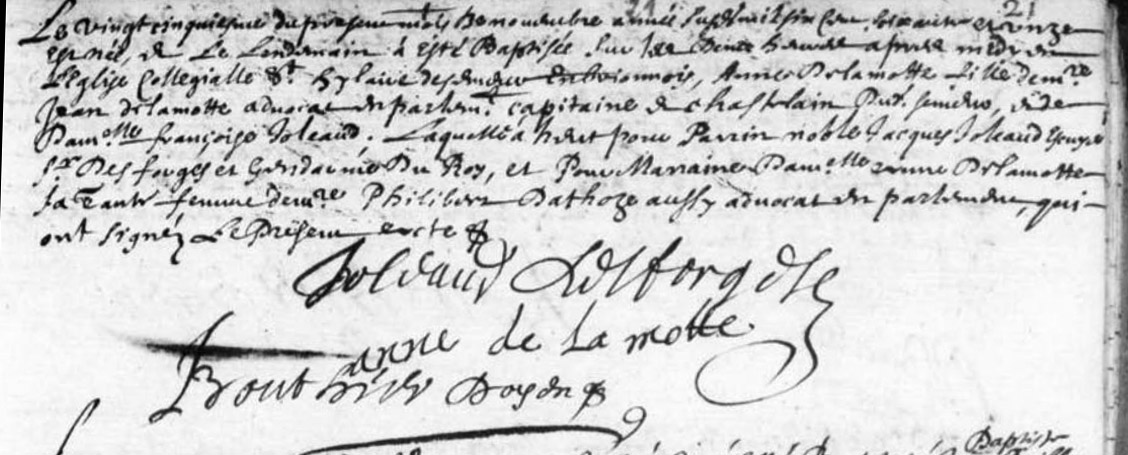 21
Le vingt cinquiesme du present mois de novembre année susd. mil six cens soixante et unze
est née, et le lendemain a esté Baptisée sur les deux heures apres midy en
l'Eglise Collegialle St hylaire de semeur, Anne Delamotte fille de mre
Jean delamotte advocat en parlemt. capitaine et chastelain dud. semeur, et de
Damlle françoise Joleaud, Laquelle a heut pour Parrin noble Jacques Joleaud Escuyer
Sr Des forges et Gendarme Du Roy, et Pour Marraine Damlle anne Delamotte
sa Tante femme de mre Philibert Dathoze aussy advocat en parlement, qui
ont signez Le Present acte
Joleaud Desforges
anne de la motte
Bouthier Doyen
Baptiste